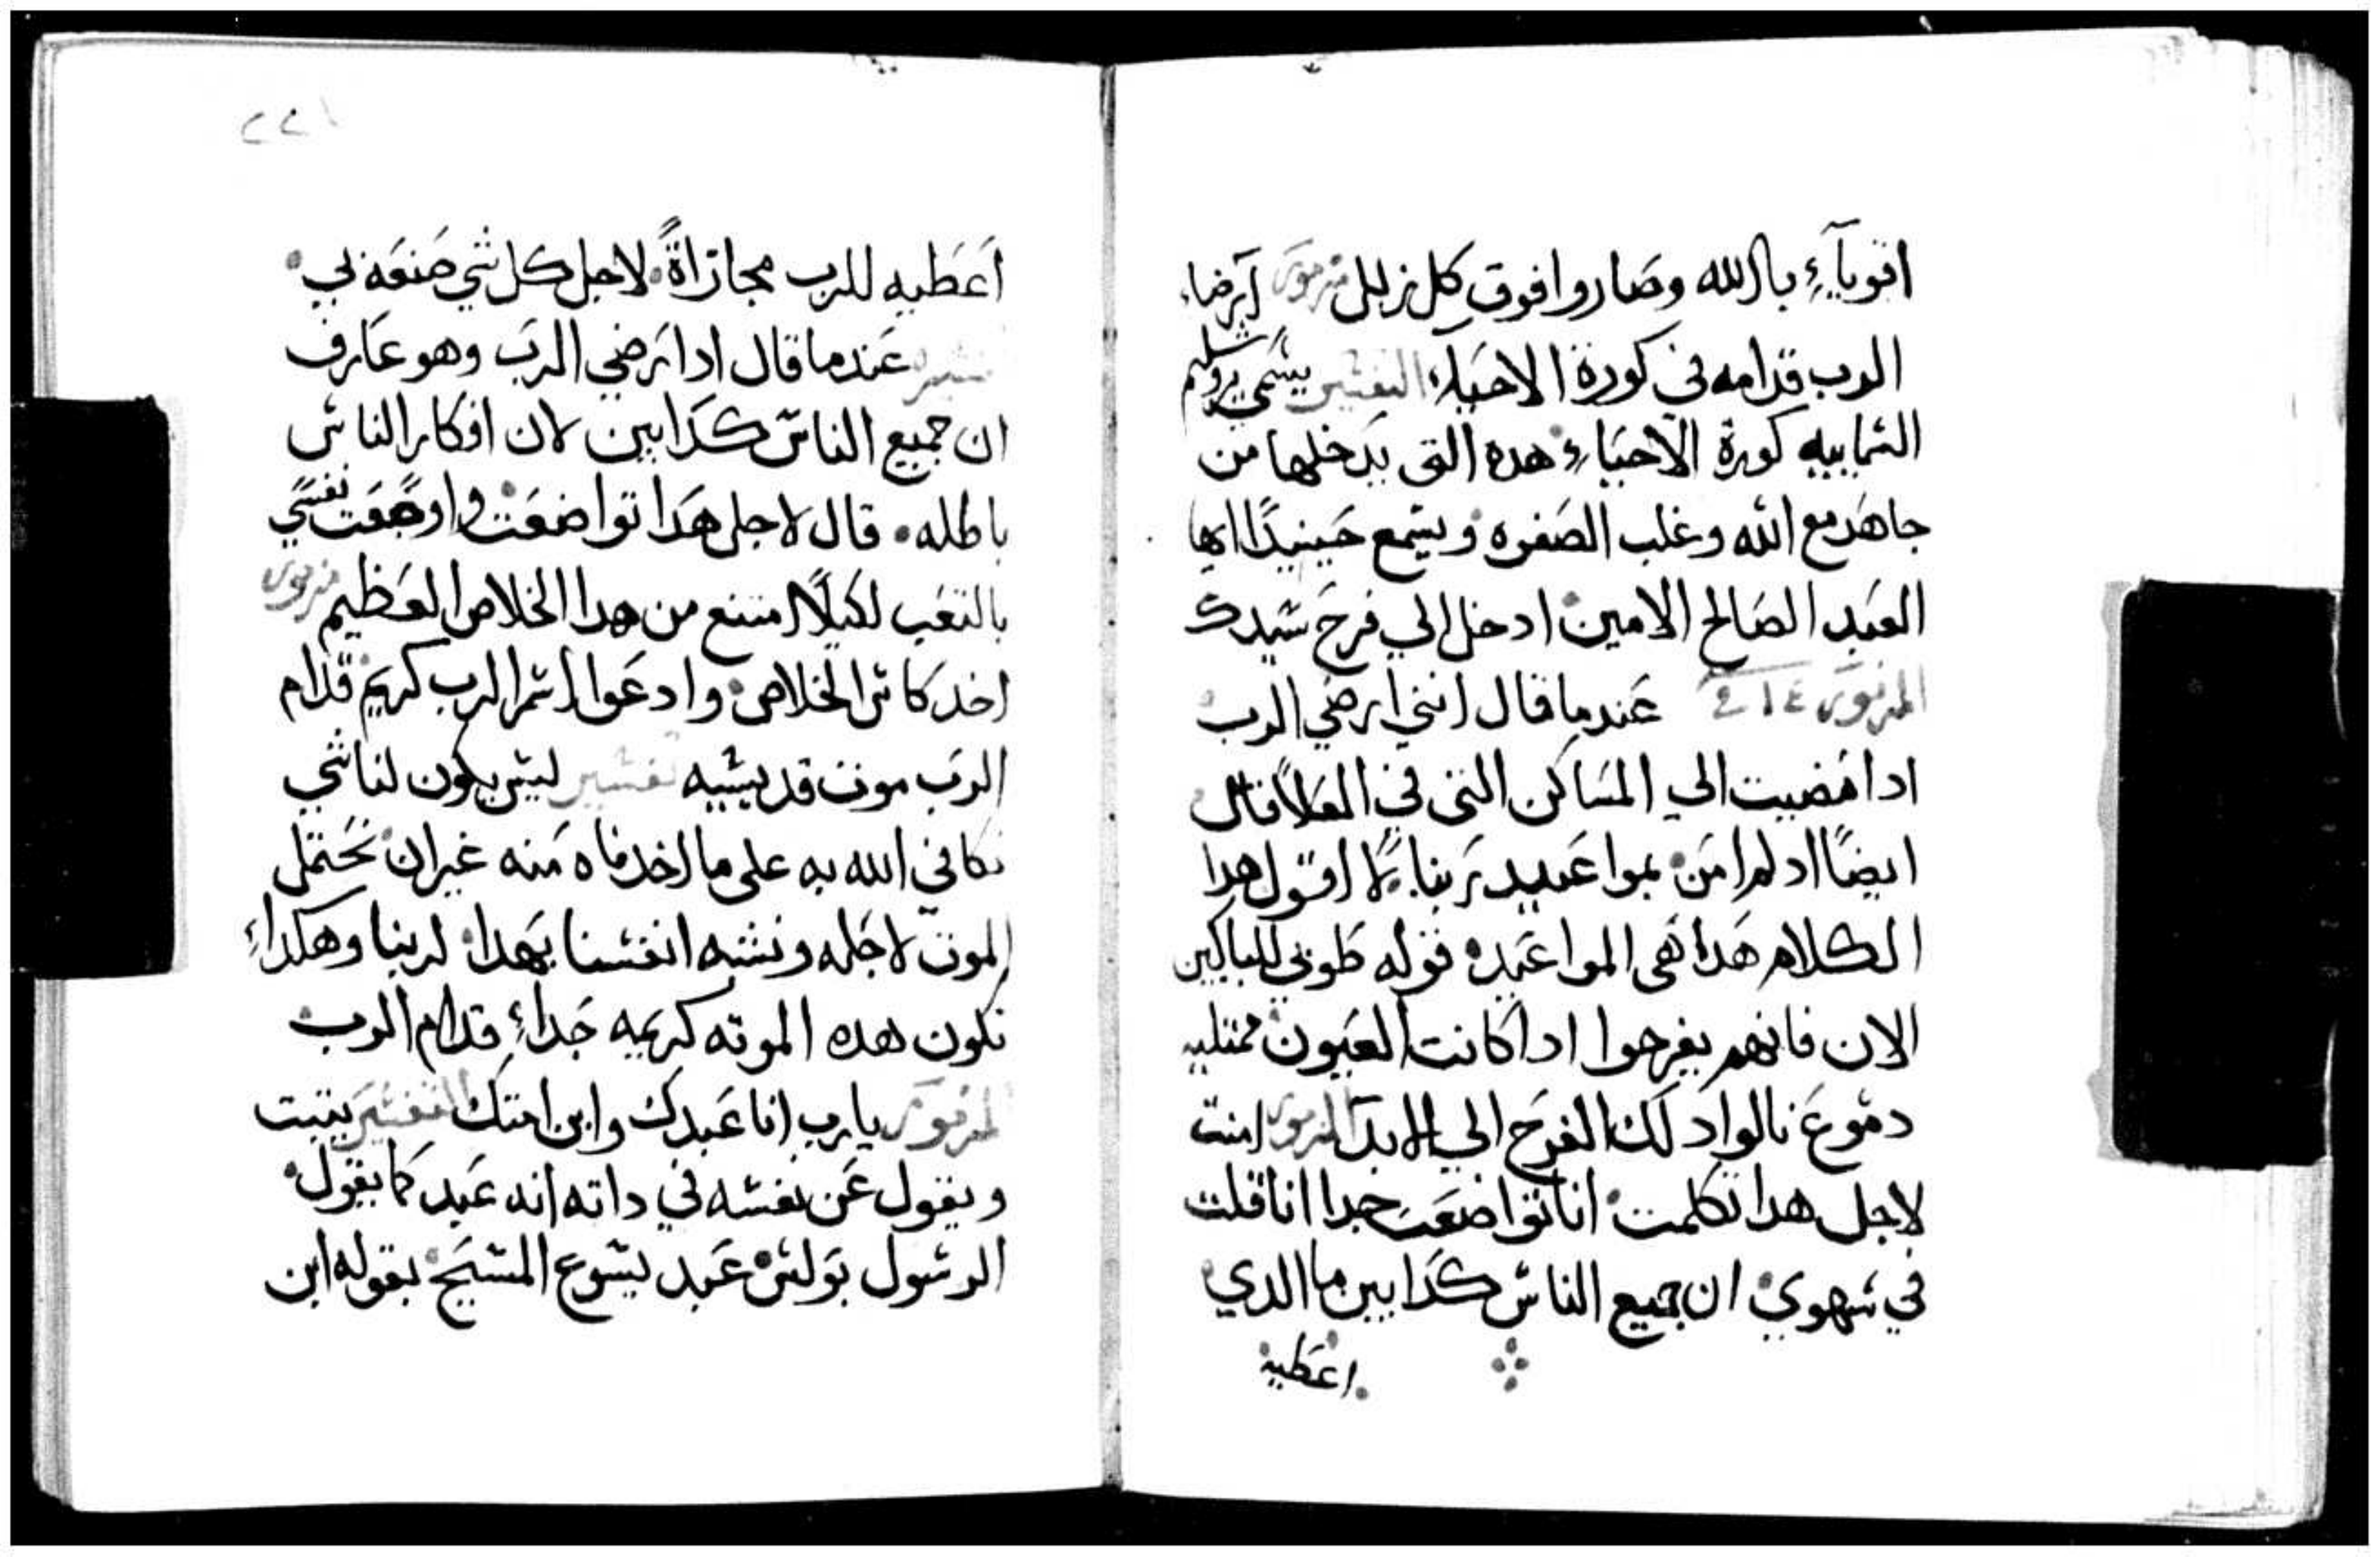 اقوياءِ بالله وصاروا فوق كل زلل مزمور ارضاء
الرب قدامه في كورة الاحياء التفسير يسمي يروشليم
السماييه كورة الاحياءِ هده التي يدخلها من
جاهد مع الله وغلب الصفره ويسمع حينيدًا ايها
العبد الصالح الامين ادخل الي فرح سيدك
المزمور عندما قال انني ارضي الرب
ادا مضيت الي المساكن التي في العلا قال
ايضًا اد لم امن بمواعيد ربنا لا اقول هدا
الكلام هدا هي المواعيد قوله طوبي للباكين
الان فانهم يفرحوا ادا كانت العيون ممتليه
دموع نالوا دلك الفرح الي الابد المزمور امنت
لاجل هدا تكلمت انا تواضعت جدا انا قلت
في سهوي ان جميع الناس كدابين ما الدي
اعطيه
٢٢١
اعطيه للرب مجازاةً لاجل كل شي صنعه بي
تفسير عندما قال ادا ارضي الرب وهو عارف
ان جميع الناس كدابين لان افكار الناس
باطله قال لاجل هدا تواضعت واوجعت نفسي
بالتعب لكيلا امتنع من هدا الخلاص العظيم مزمور
اخد كاس الخلاص وادعوا اسم الرب كريم قدام
الرب موت قديسيه تفسير ليس يكون لنا شي
نكافي الله به علي ما اخدناه منه غير ان نحتمل
الموت لاجله ونشبه انفسنا بهدا لربنا وهكداءِ
تكون هده الموته كريمه جداءِ قدام الرب
المزمور يارب انا عبدك وابن امتك التفسير يتبت
ويقول عن نفسه في داته انه عبد كما يقول
الرسول بولس عبد يسوع المسيح بقوله ابن